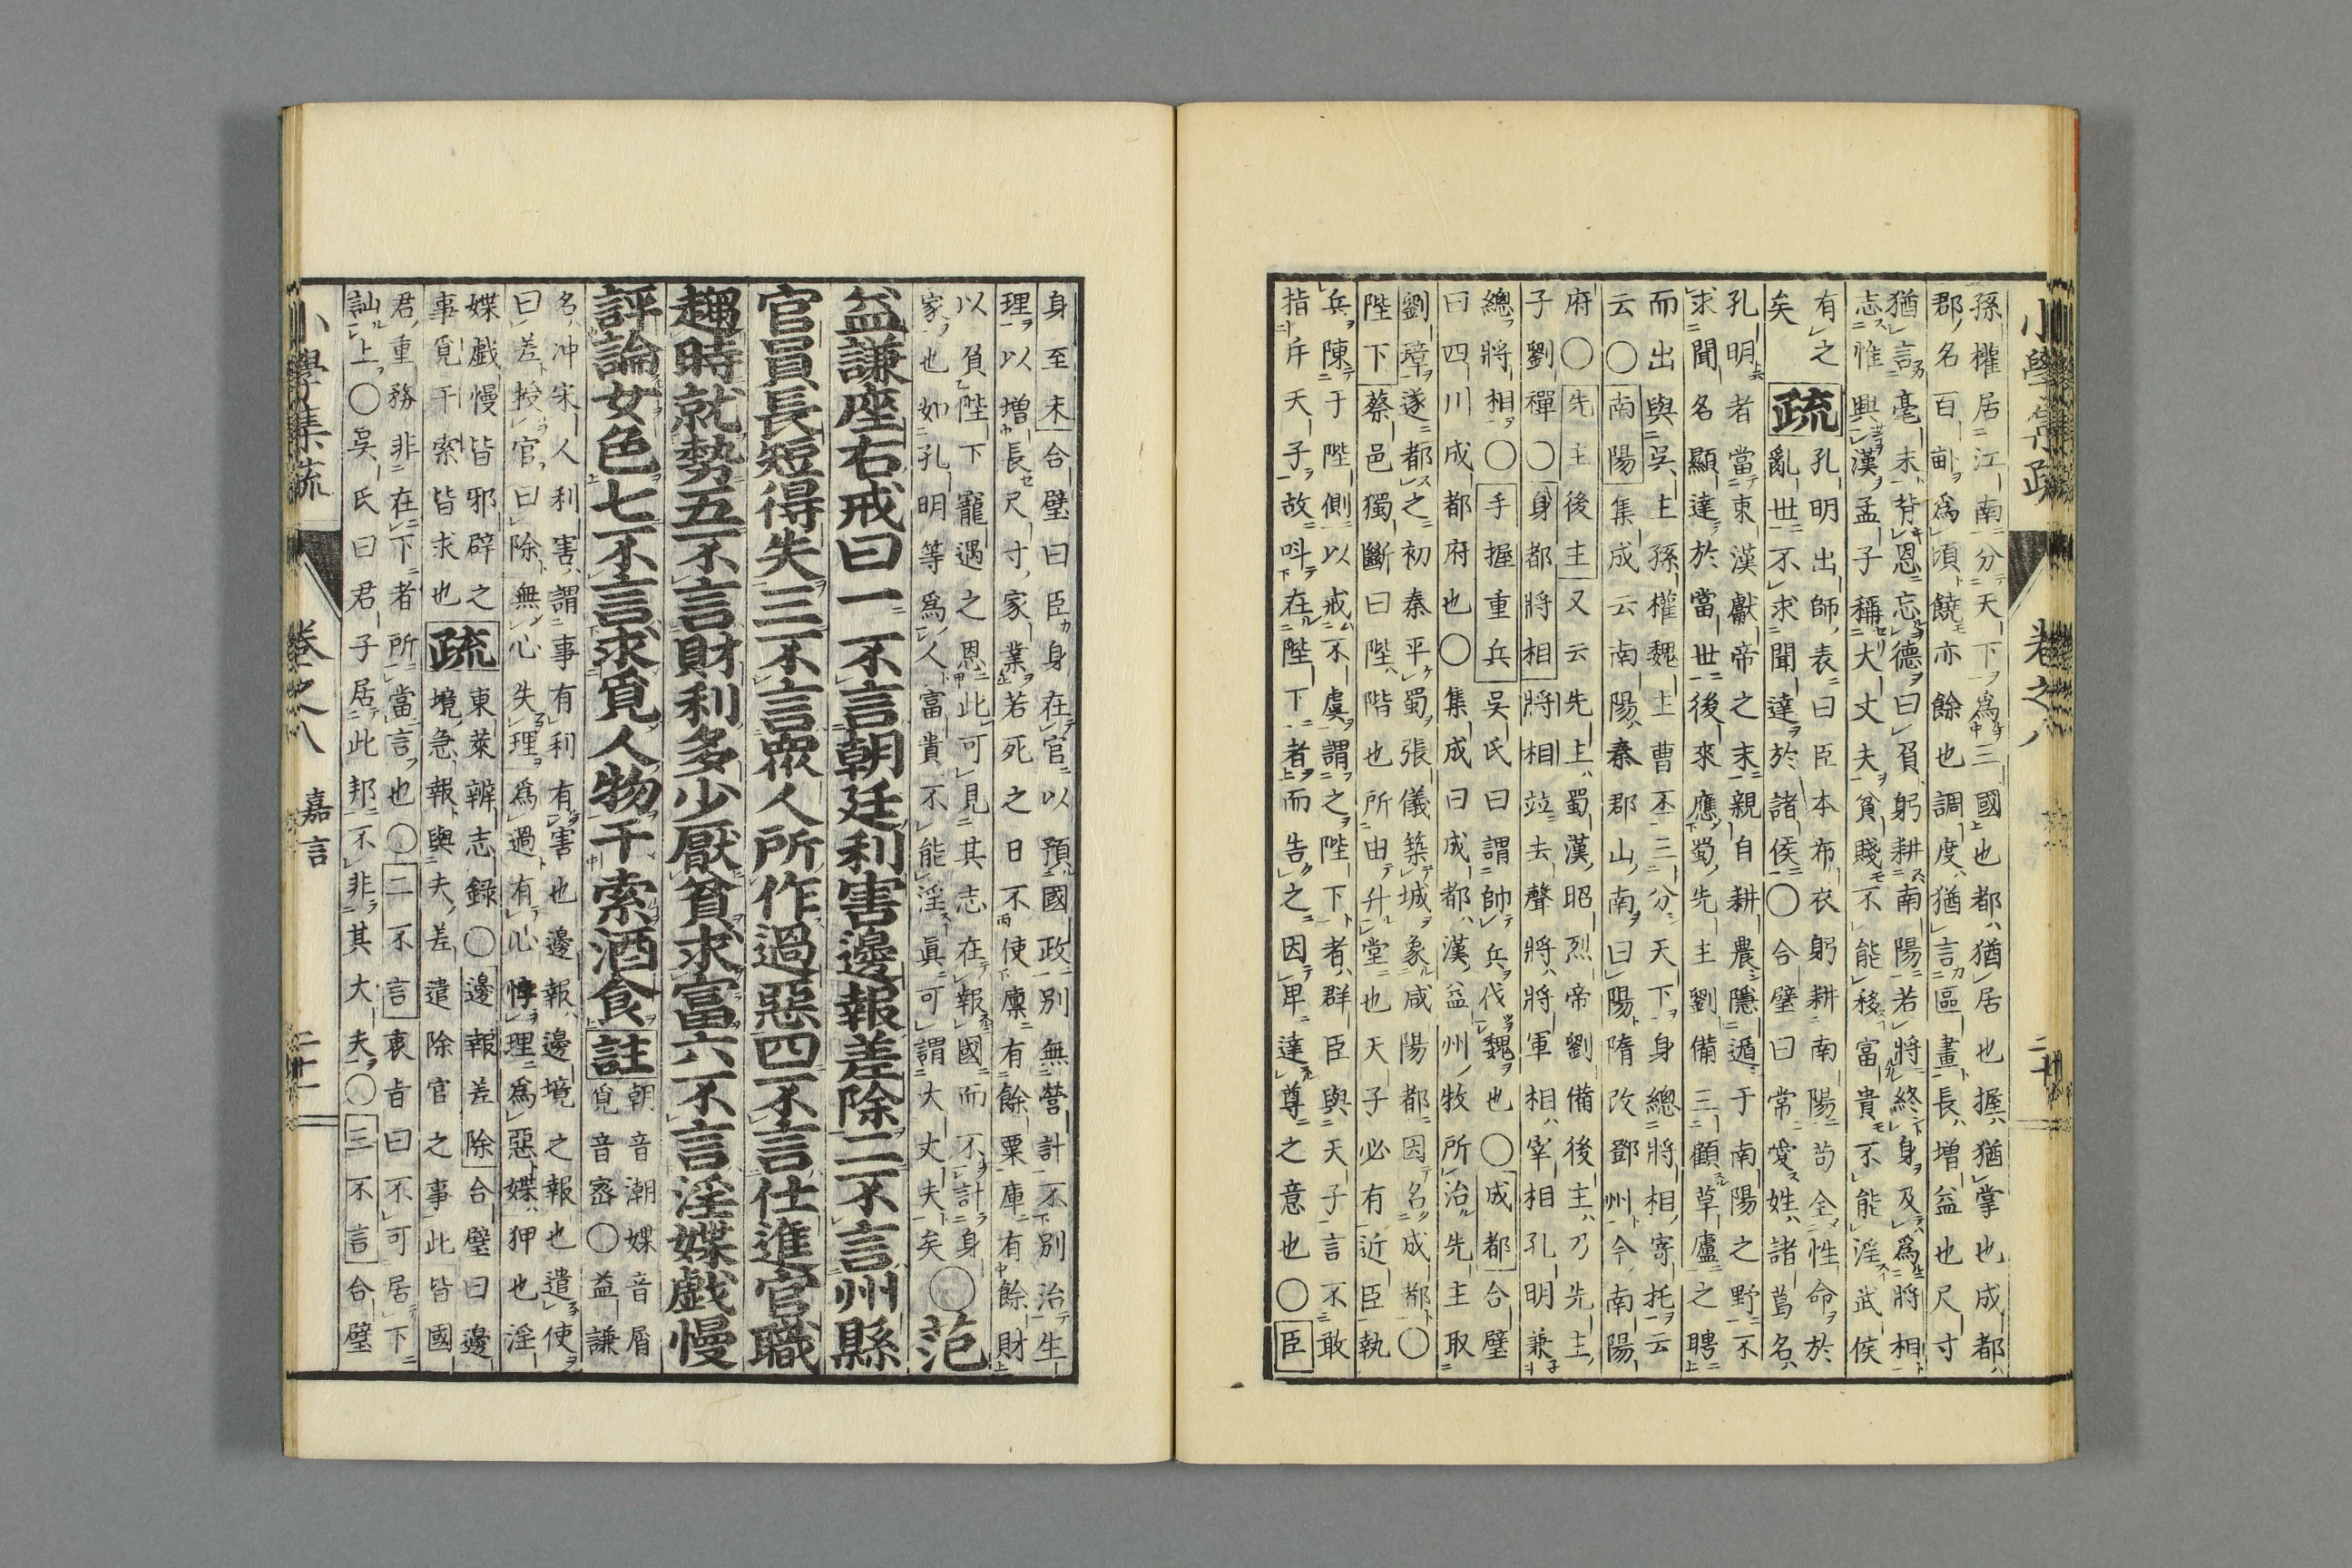 孫權居江南分天下爲三國也都猶居也握猶掌也成都
郡名百畝爲頃饒亦餘也調度猶言區畫長增益也尺寸
猶言毫末背恩忘德曰負躬耕南陽若將終身及爲將相
志惟興漢孟子稱大丈夫貧賤不能移富貴不能淫武侯
有之
矣
疏
孔明出師表曰臣本布衣躬耕南陽苟全性命於
亂世不求聞達於諸侯〇合璧曰常愛姓諸葛名
孔明者當東漢獻帝之末親自耕農隱遁于南陽之野不
求聞名顯達於當世後來應蜀先主劉備三顧草廬之聘
而出與吳主孫權魏主曹丕三分天下身總將相寄托云
云〇南陽集成云南陽秦郡山南曰陽隋改鄧州今南陽
府〇先主後主又云先主蜀漢昭烈帝劉備後主乃先主
子劉禪〇身都將相將相竝去聲將將軍相宰相孔明兼
總將相〇手握重兵吳氏曰謂帥兵伐魏也〇成都合璧
曰四川成都府也〇集成曰成都漢益州牧所治先主取
劉璋遂都之初秦平蜀張儀築城象咸陽都因名成都〇
陛下蔡邕獨斷曰陛階也所由升堂也天子必有近臣執
兵陳于陛側以戒不虞謂之陛下者群臣與天子言不敢
指斥天子故呌在陛下者而告之因卑達尊之意也〇臣
小學集疏 卷之八 二十
身至末合璧曰臣身在官以預國政別無營計不別治生
理以增長尺寸家業若死之日不使廩有餘粟庫有餘財
以負陛下寵遇之恩此可見其志在報國而不計身
家也如孔明等爲人富貴不能淫眞可謂大丈夫矣〇范
益謙座右戒曰一不言朝廷利害邊報差除二不言州縣
官員長短得失三不言衆人所作過惡四不言仕進官職
趨時就勢五不言財利多少厭貧求富六不言淫媟戲慢
評論女色七不言求覓人物干索酒食
註
朝音潮媟音屑
覓音宻〇益謙
名冲宋人利害謂事有利有害也邊報邊境之報也遣使
曰差授官曰除無心失理爲過有心悖理爲惡媟狎也淫
媟戲慢皆邪辟之
事覓干索皆求也
疏
東萊辨志錄〇邊報差除合璧曰邊
境急報與夫差遣除官之事此皆國
君重務非在下者所當言也〇二不言衷旨曰不可居下
訕上〇吳氏曰君子居此邦不非其大夫〇三不言合璧
小學集疏 卷之八 嘉言 二十一